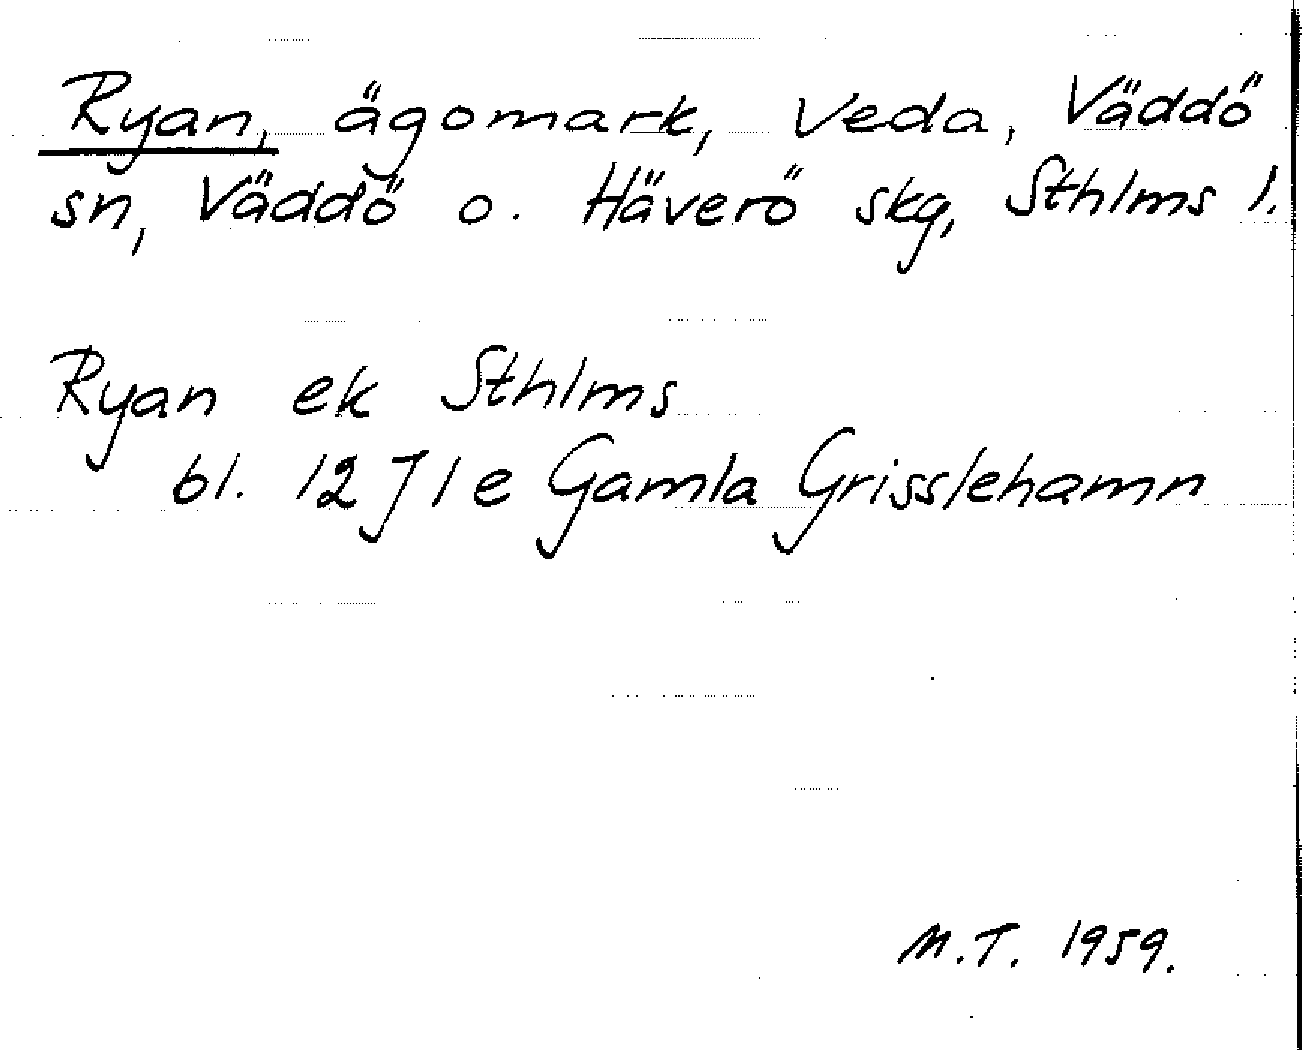 Ryan, ägomark, Veda, Väddö
sn, Väddö o. Häverö skg, Sthlms l.
Ryan ek Sthlms
bl. 12 J 1 e Gamla Grisslehamn
M.T. 1959.